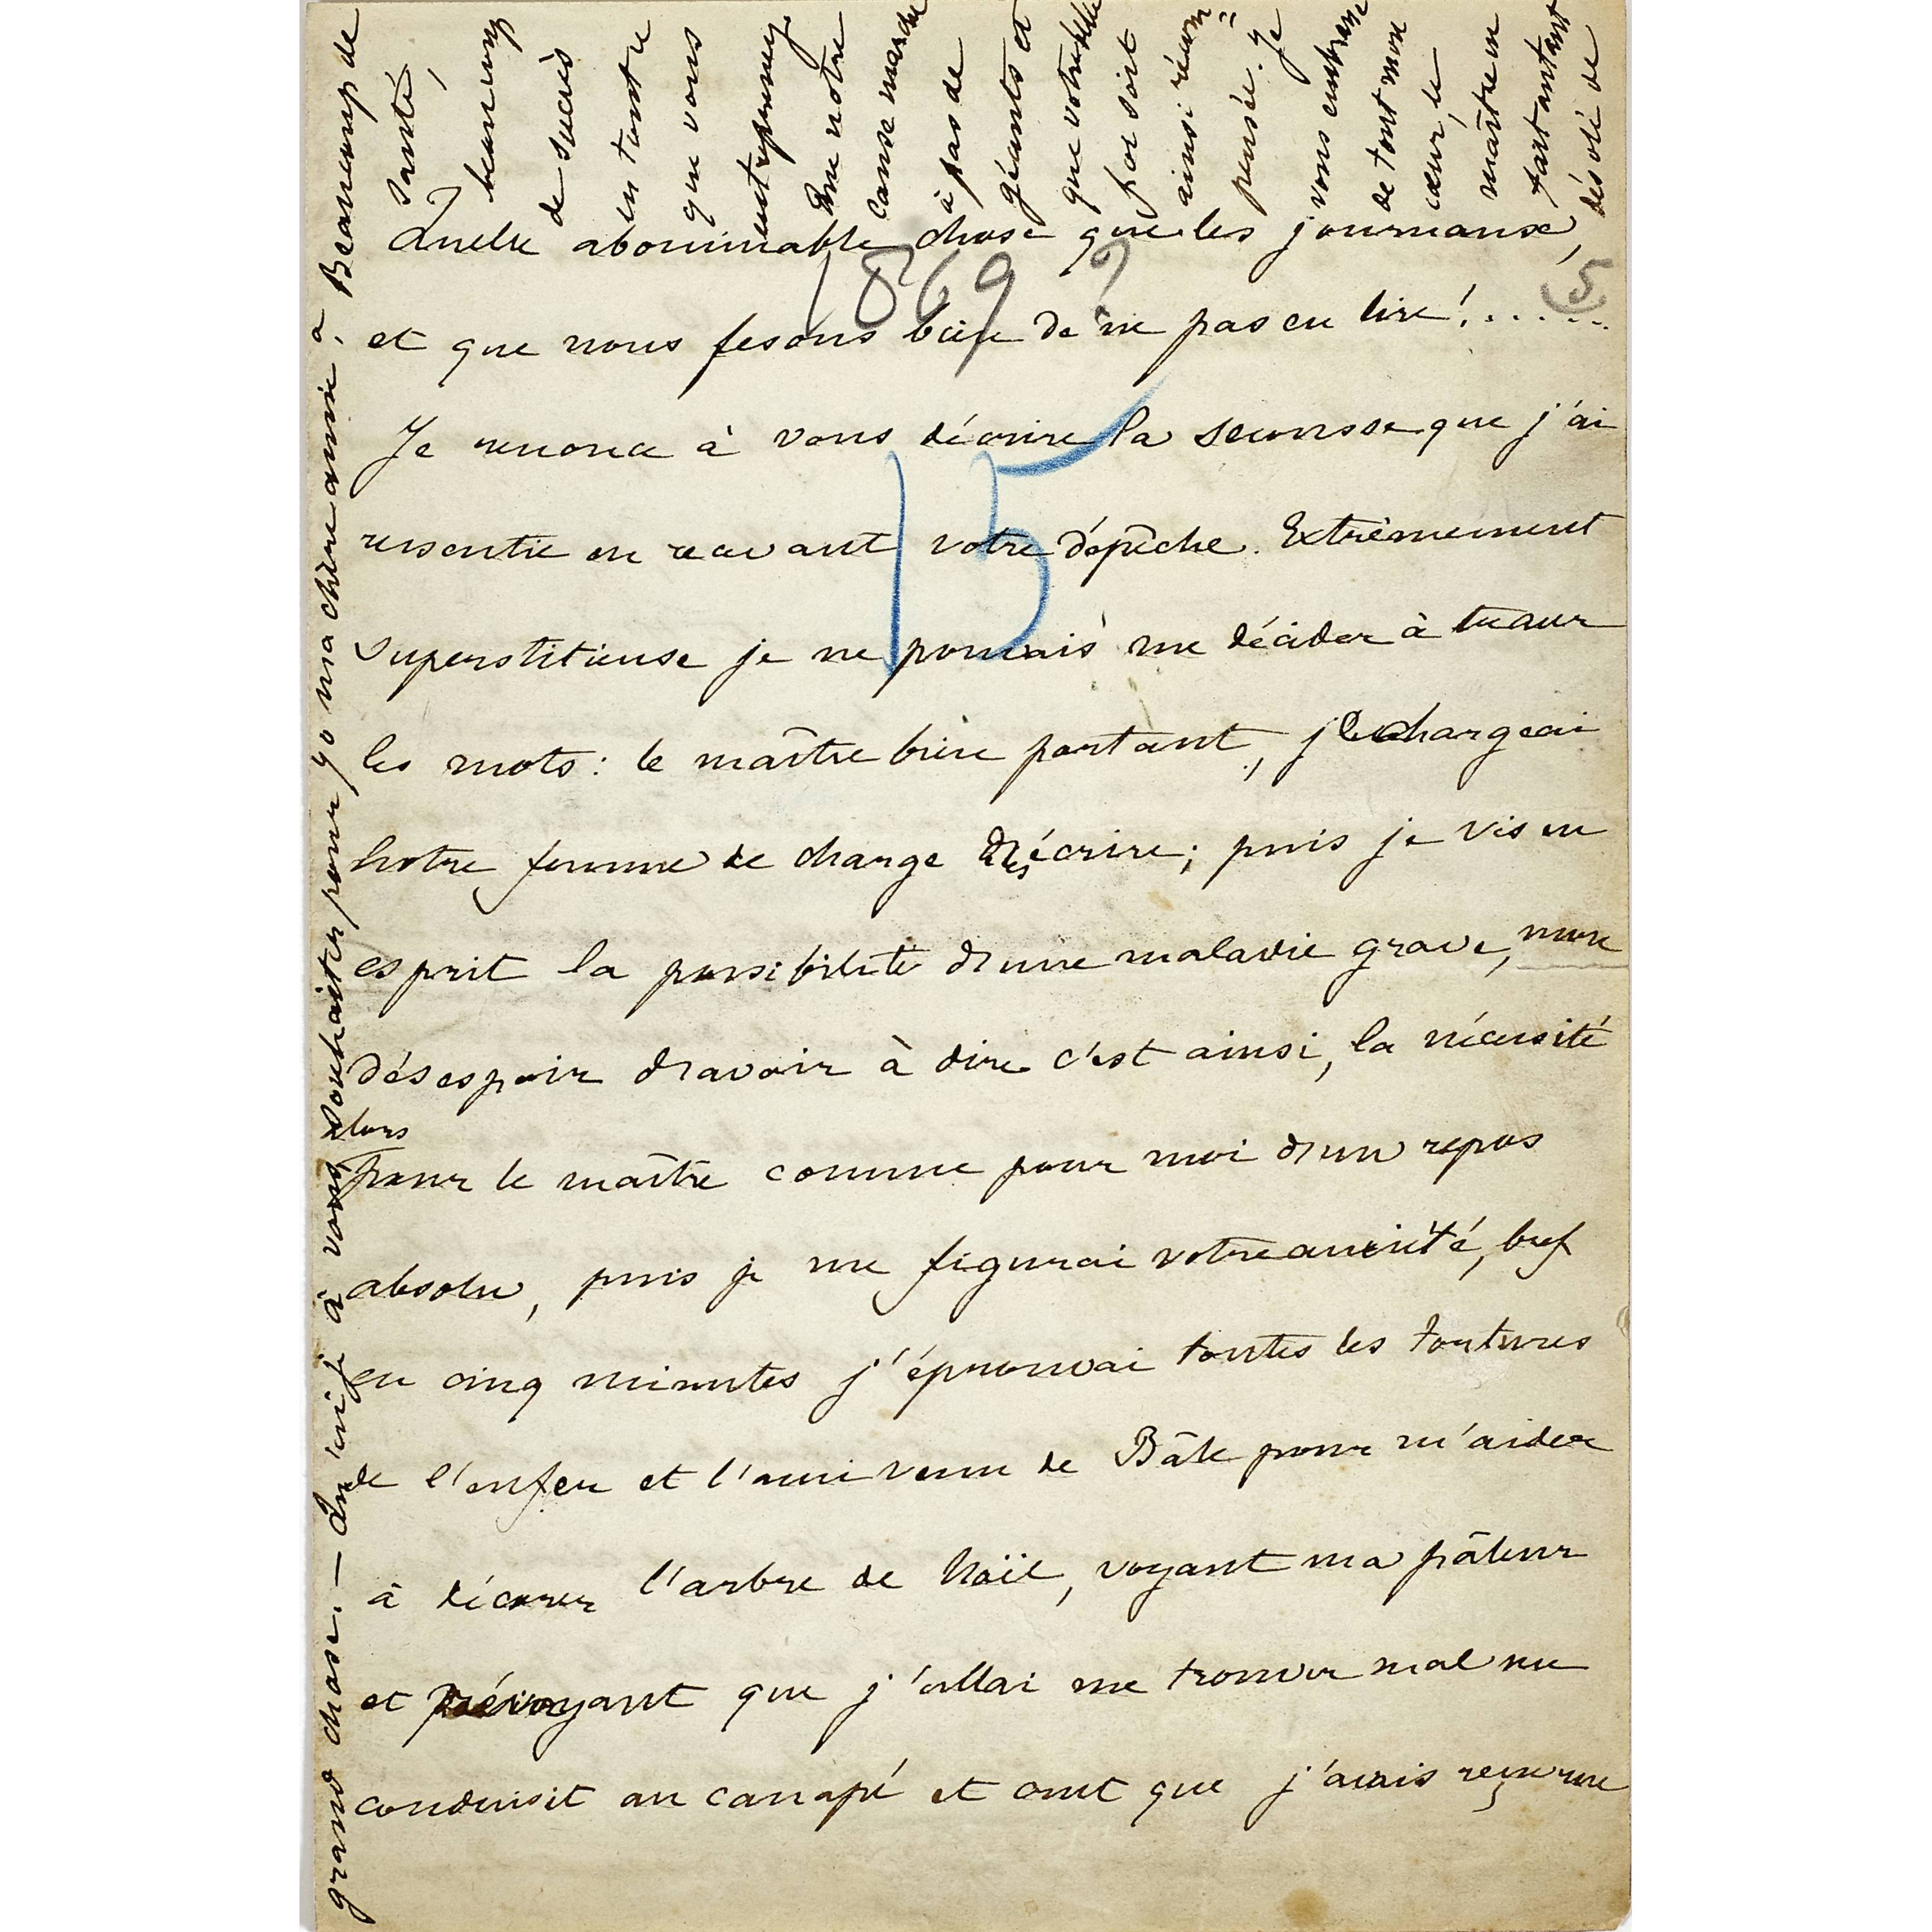 Quelle abominable chose que les journaux,
1869 ?
5
et que nous fesons bien de ne pas en lire! . . . . . .
Je renonce à vous décrire la secousse que j'ai
15
ressentie en recevant votre dépêche. Extrêmement
superstitieuse je ne pouvais me décider à tracer
les mots: le maître bien portant, je chargeai
notre femme de charge de les écrire; puis je vis en
esprit la possibilité d'une maladie grave, mon
désespoir d'avoir à dire c'est ainsi, la nécessité
alors
pour le maître comme pour moi d'un repos
absolu, puis je me figurai votre anxiété, bref
en cinq minutes j'éprouvai toutes les tortures
de l'enfer et l'ami venu de Bâle pour m'aider
à décorer l'arbre de Noël, voyant ma pâleur
et prévoyant que j'allai me trouver mal me
conduisit au canapé et crut que j'avais reçu une
grand chose. — Qu'ai-je à vous souhaiter pour 70 ma chère amie, à
Beaucoup de
santé,
beaucoup
de succès
en tout ce
que vous
entreprenez
Que notre
cause marche
à pas de
géants et
que votre belle
foi soit
ainsi récom=
pensée. Je
vous embrasse
de tout mon
cœur, le
maître en
fait autant
désolé de